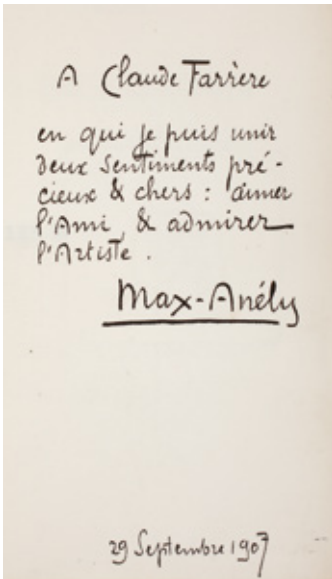 A Claude Farrère
en qui je puis unir
deux sentiments pré-
cieux & chers : aimer
l'Ami, & admirer
l'Artiste.
Max-Anély
29 Septembre 1907